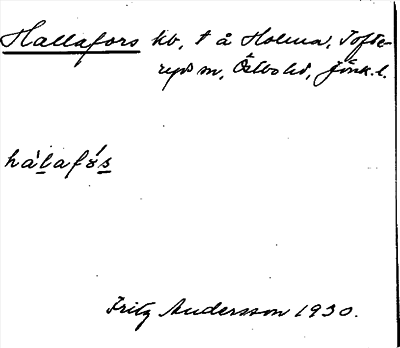 Hallafors kv, t å Holma, Tofte-
ryds sn, Östbo hd, Jönk. l.
hàlafó̤s
Fritz Andersson 1930.